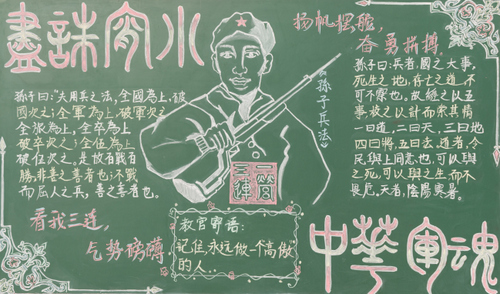 盡誅宵小
孫子曰:"夫用兵之法,全國為上,破
國次之;全軍為上,破軍次之
全旅為上,全卒為上
破卒次之;全伍為上
破伍次之,是故百戰百
勝,非善之善者也;不戰
而屈人之兵,善之善者也。
看我三連,
气势磅礴
《孫子兵法》
一營
三連
教官寄语:
记住,永远做一个高傲
的人.
扬帆摆舵,
奋勇拼搏.
孫子曰:兵者,國之大事,
死生之地,存亡之道,不
可不察也。故經之以五
事,校之以計而索其情
一曰道,二曰天,三曰地
四曰將,五曰法,道者,令
民與上同意也,可以與
之死,可以與之生而不
畏危。天者,陰陽寒暑。
中華軍魂